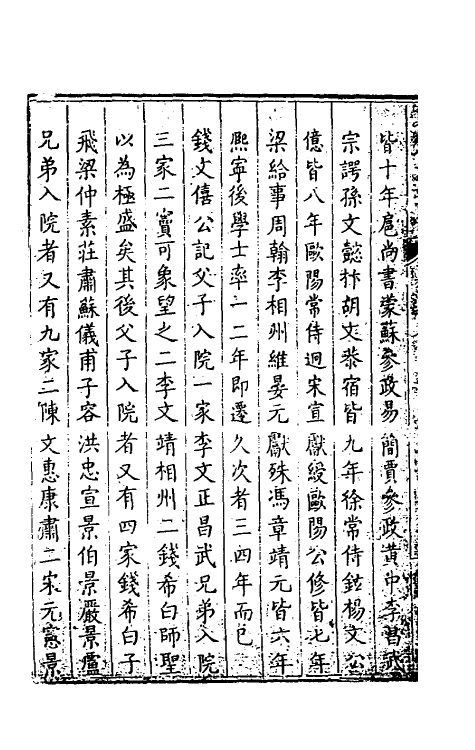 皆十年扈尚書蒙蘇參政易簡賈參政黃中李昌武
宗諤孫文懿抃胡文恭宿皆九年徐常侍鉉楊文公
億皆八年歐陽常侍迥宋宣獻綬歐陽公修皆七年
梁給事周翰李相州維晏元獻殊馮章靖元皆六年
熈寧後學士率一二年即遷久次者三四年而已
錢文僖公記父子入院一家李文正昌武兄弟入院
三家二竇可象望之二李文靖相州二錢希白師聖
以為極盛矣其後父子入院者又有四家錢希白子
飛梁仲素莊肅蘇儀甫子容洪忠宣景伯景嚴景盧
兄弟入院者又有九家二陳文惠康肅二宋元憲景